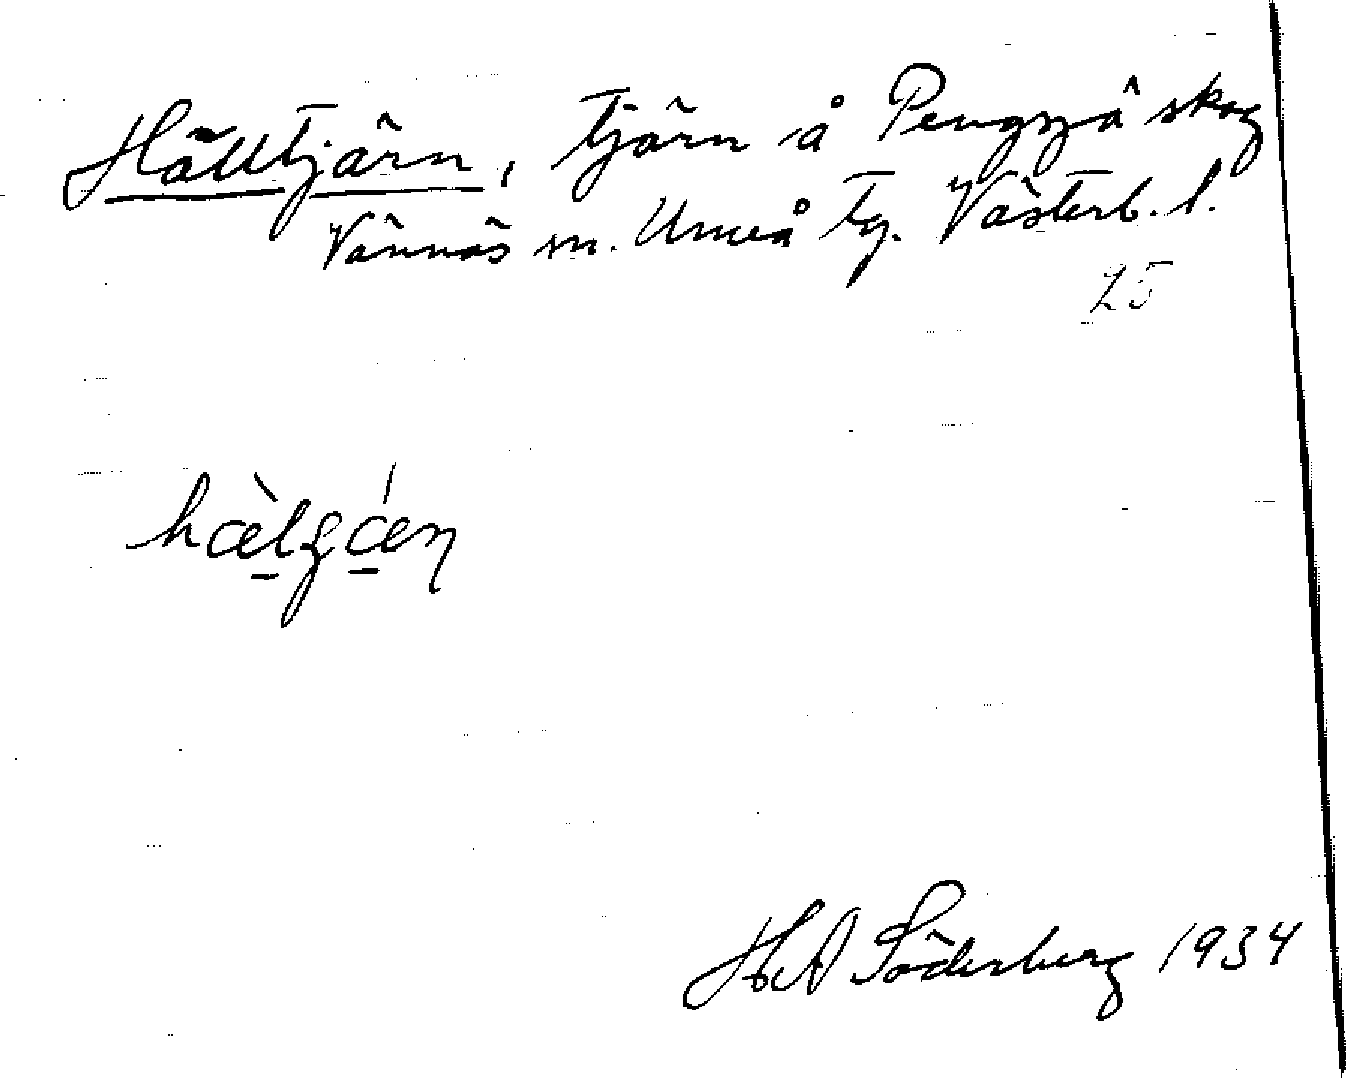 Hälltjärn, tjärn å Pengsjö skog
Vännäs sn. Umeå tg. Västerb. l.
25
H A Söderberg 1934